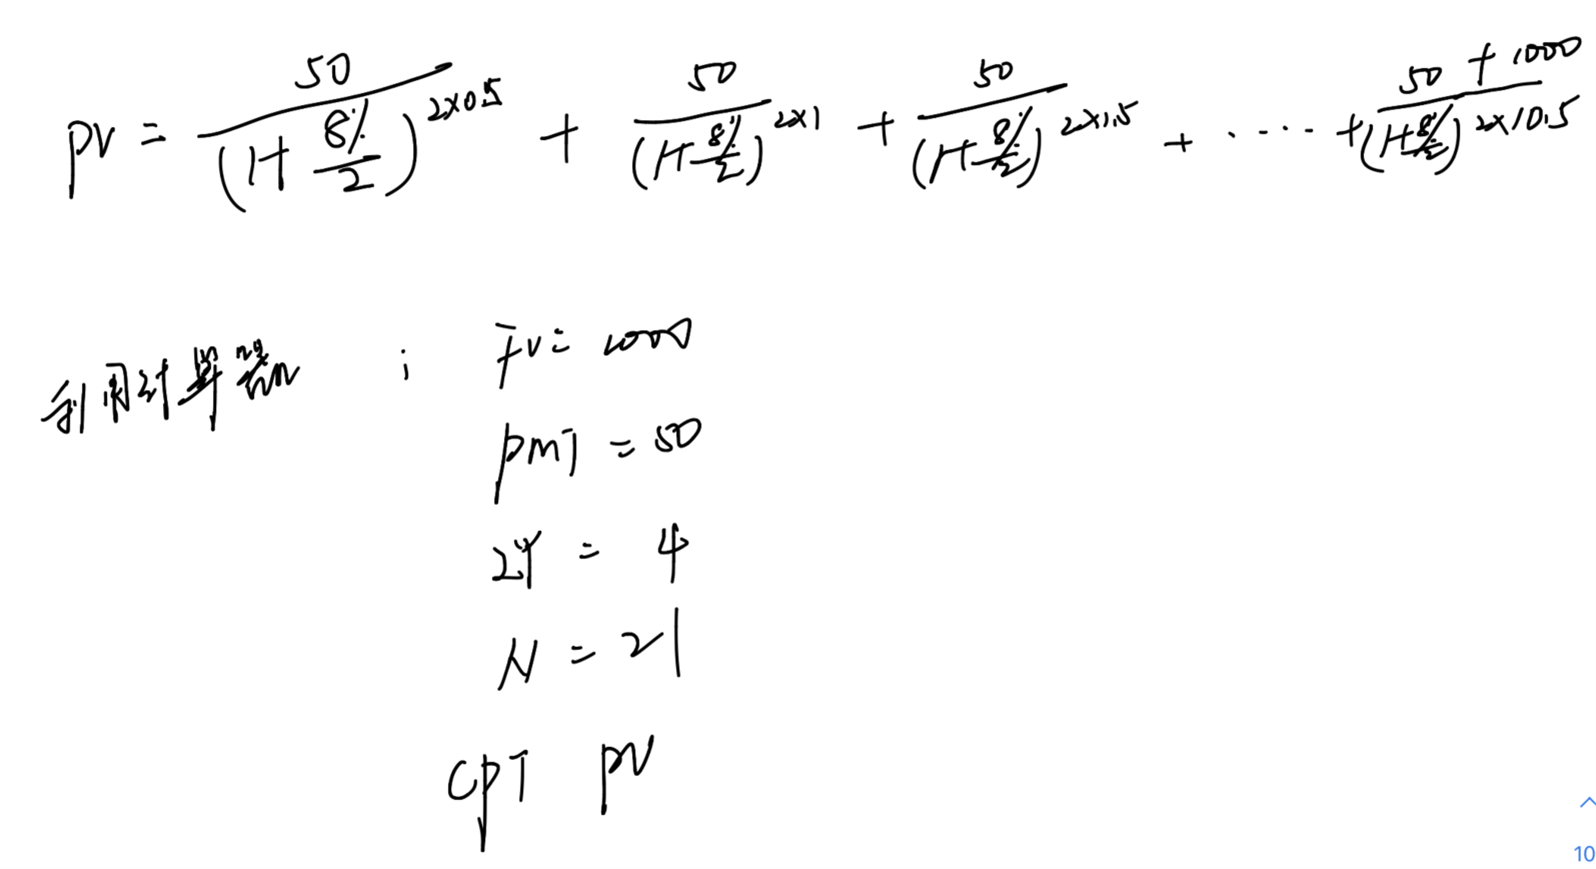 PV = 50/(1+8%/2)^2×0.5 + 50/(1+8%/2)^2×1 + 50/(1+8%/2)^2×1.5 + ····· + 50+1000/(1+8%/2)^2×10.5
利用计算器 ; FV= 1000
PMT = 50
2Y = 4
N = 21
CPT PV
10